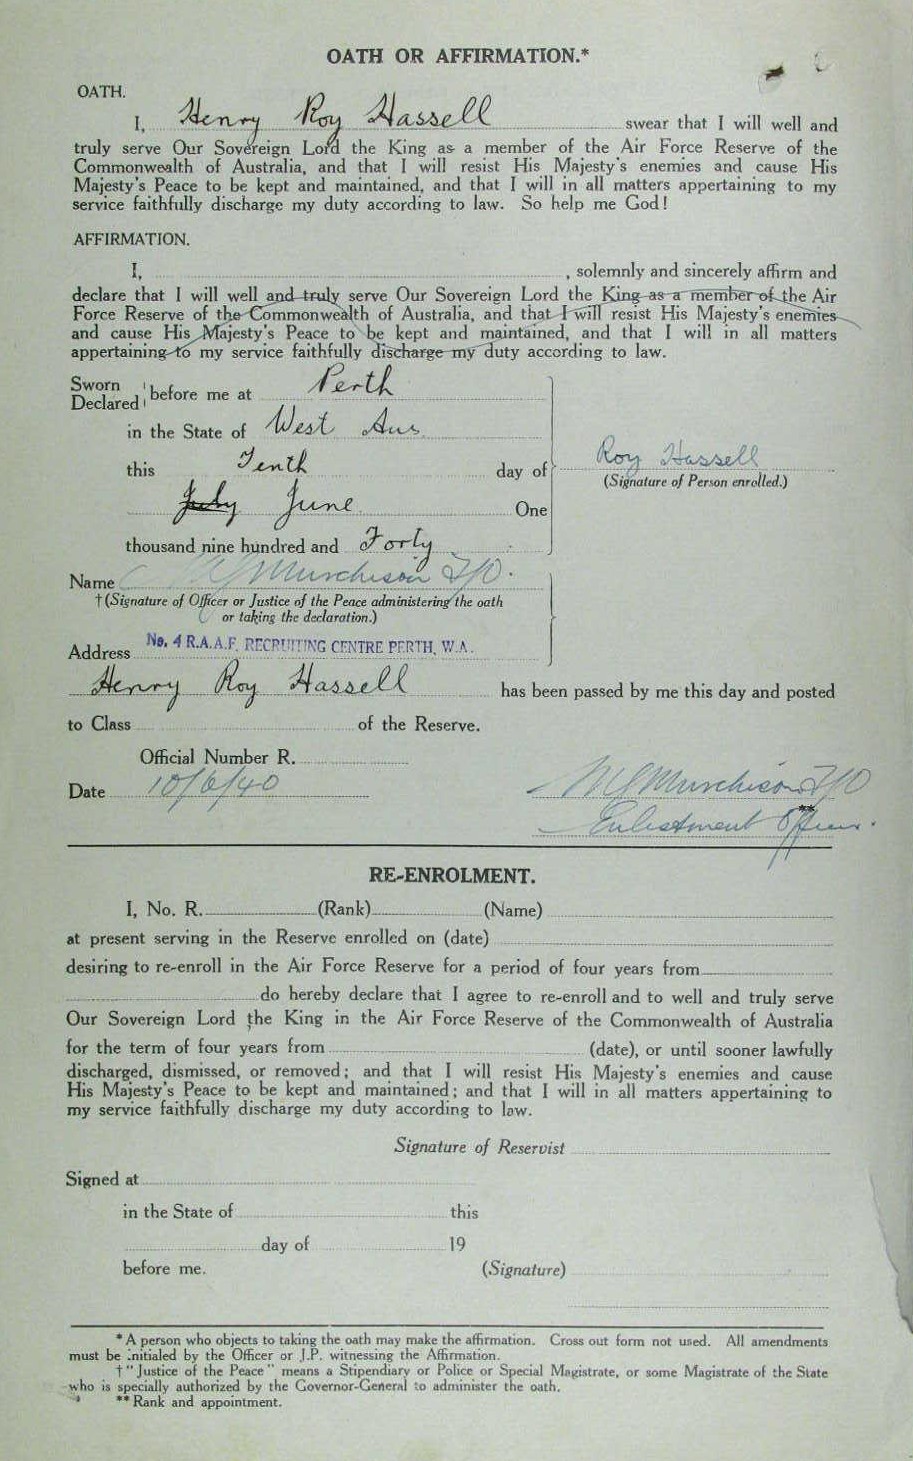 OATH OR AFFIRMATION.*
OATH.
I, Henry Roy Hassell swear that I will well and
truly serve Our Sovereign Lord the King as a member of the Air Force Reserve of the
Commonwealth of Australia, and that I will resist His Majesty's enemies and cause His
Majesty's Peace to be kept and maintained, and that I will in all matters appertaining to my
service faithfully discharge my duty according to law. So help me God!
AFFIRMATION.
I, , solemnly and sincerely affirm and
declare that I will well and truly serve Our Sovereign Lord the King as a member of the Air
Force Reserve of the Commonwealth of Australia, and that I will resist His Majesty's enemies
and cause His Majesty's Peace to be kept and maintained, and that I will in all matters
appertaining to my service faithfully discharge my duty according to law.
Sworn
Declared before me at Perth
in the State of West Aus
this Tenth day of
July June One
thousand nine hundred and Forty
Roy Hassell
(Signature of Person enrolled.)
Name Murchison F/O.
†(Signature of Officer or Justice of the Peace administering the oath
or taking the declaration.)
Address No. 4 R.A.A.F. RECRUITING CENTRE PERTH, W.A.
Henry Roy Hassell has been passed by me this day and posted
to Class of the Reserve.
Official Number R.
Date 10/6/40
Murchison F/O
**
Enlistment Officer.
RE-ENROLMENT.
I, No. R. (Rank) (Name)
at present serving in the Reserve enrolled on (date)
desiring to re-enroll in the Air Force Reserve for a period of four years from
do hereby declare that I agree to re-enroll and to well and truly serve
Our Sovereign Lord the King in the Air Force Reserve of the Commonwealth of Australia
for the term of four years from (date), or until sooner lawfully
discharged, dismissed, or removed; and that I will resist His Majesty's enemies and cause
His Majesty's Peace to be kept and maintained; and that I will in all matters appertaining to
my service faithfully discharge my duty according to law.
Signature of Reservist
Signed at
in the State of this
day of 19
before me. (Signature)
* A person who objects to taking the oath may make the affirmation. Cross out form not used. All amendments
must be initialed by the Officer or J.P. witnessing the Affirmation.
† "Justice of the Peace" means a Stipendiary or Police or Special Magistrate, or some Magistrate of the State
who is specially authorized by the Governor-General to administer the oath.
** Rank and appointment.